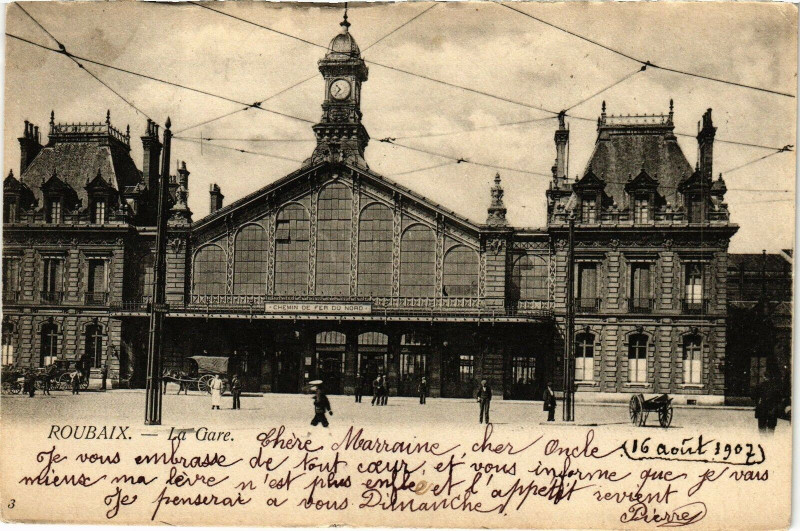 CHEMIN DE FER DU NORD
ROUBAIX. — La Gare.
Chère Marraine, cher Oncle (16 août 1902)
Je vous embrasse de tout cœur, et vous informe que je vais
mieux ma lèvre n'est plus enflée et l'appétit revient
Je penserai a vous Dimanche.
Pierre
3